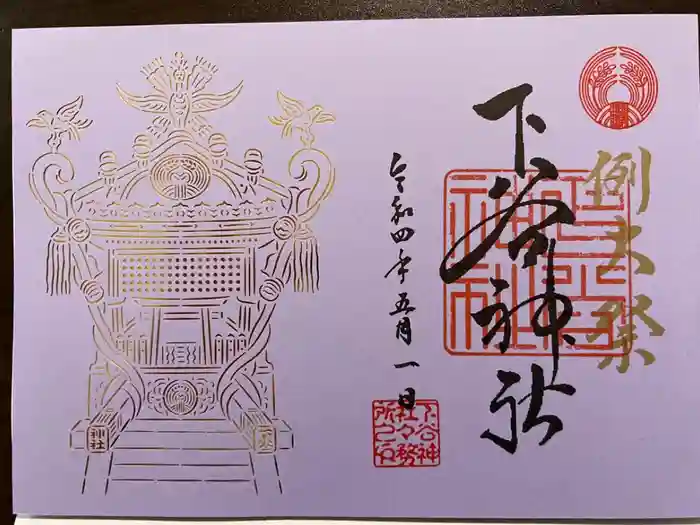 例大祭
下谷神社
下谷神社
令和四年五月一日
下谷神
社々務
所之印
神社